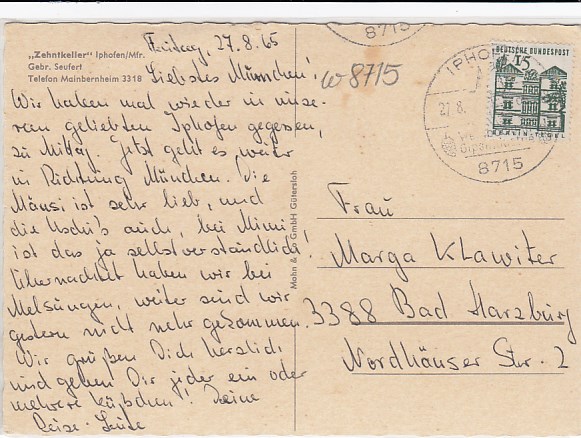 "Zehntkeller" Iphofen/Mfr.
Gebr. Seufert
Telefon Mainbernheim 3318
Freitag, 27.8.65
Liebstes Mümmchen!
Wir haben mal wieder in unse-
rem geliebten Iphofen gegessen,
zu Mittag. Jetzt geht es weiter
in Richtung München. Die
Mausi ist sehr lieb, und
die Uschi's auch, bei Mimi
ist das ja selbstverständlich!
Übernachtet haben wir bei
Melsungen, weiter sind wir
gestern nicht mehr gekommen.
Wir grüßen Dich herzlich
und geben Dir jeder ein oder
mehrere Küßchen! Deine
Reise-Leute
Mohn & GmbH Gütersloh
W 8715
8715
IPHOFEN
27.8.
8715
DEUTSCHE BUNDESPOST
15
BERLIN-TEGEL
Frau
Marga Klawiter
3388 Bad Harzburg
Nordhäuser Str. 2